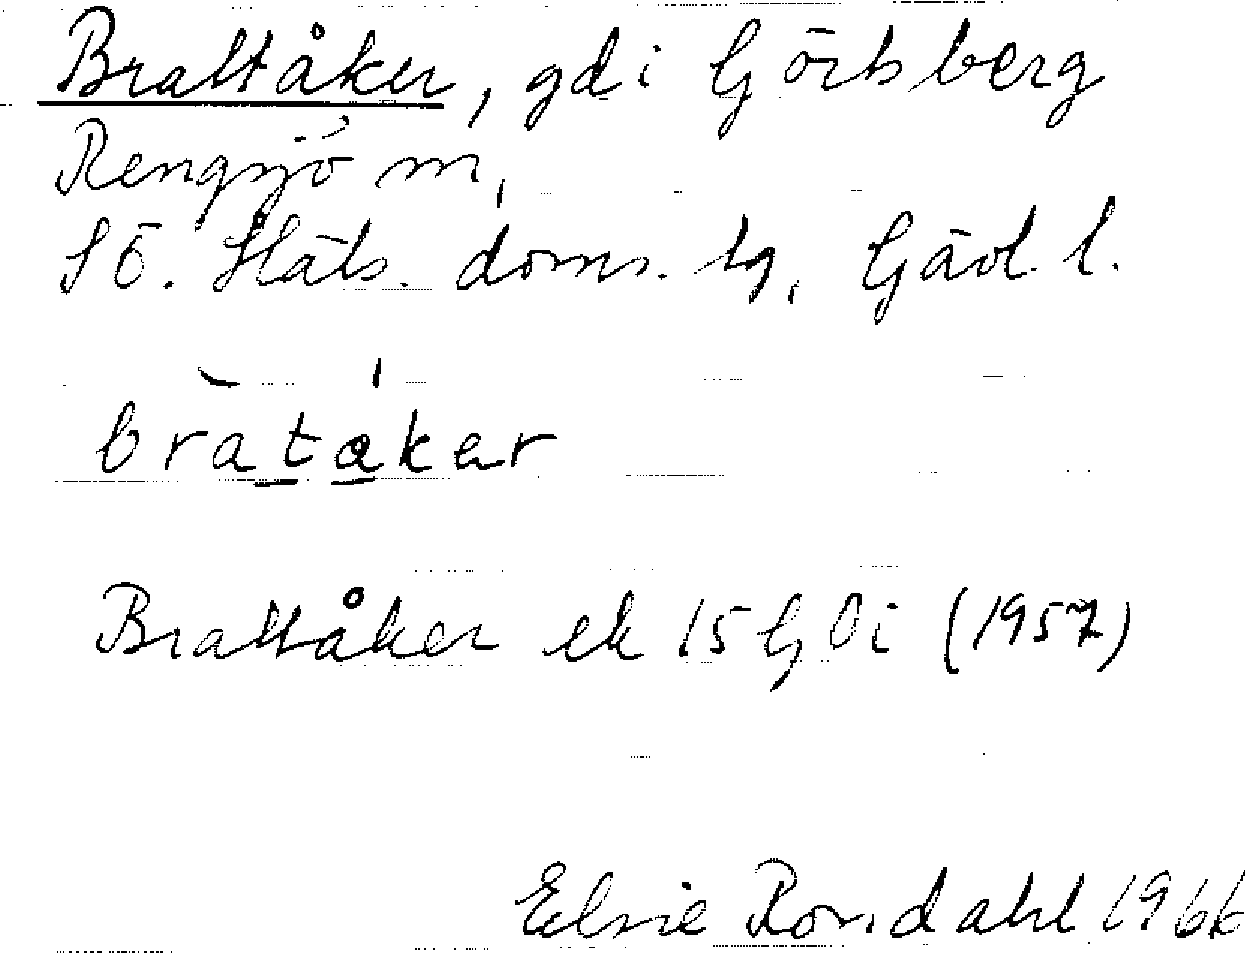 Brattåker, gd i Görtsberg
Rengsjö sn,
SÖ. Häls. doms. tg, Gävl. l.
bràta̲kar
Brattåker ek 15G 0i (1957)
Elsie Rosvdahl 1966